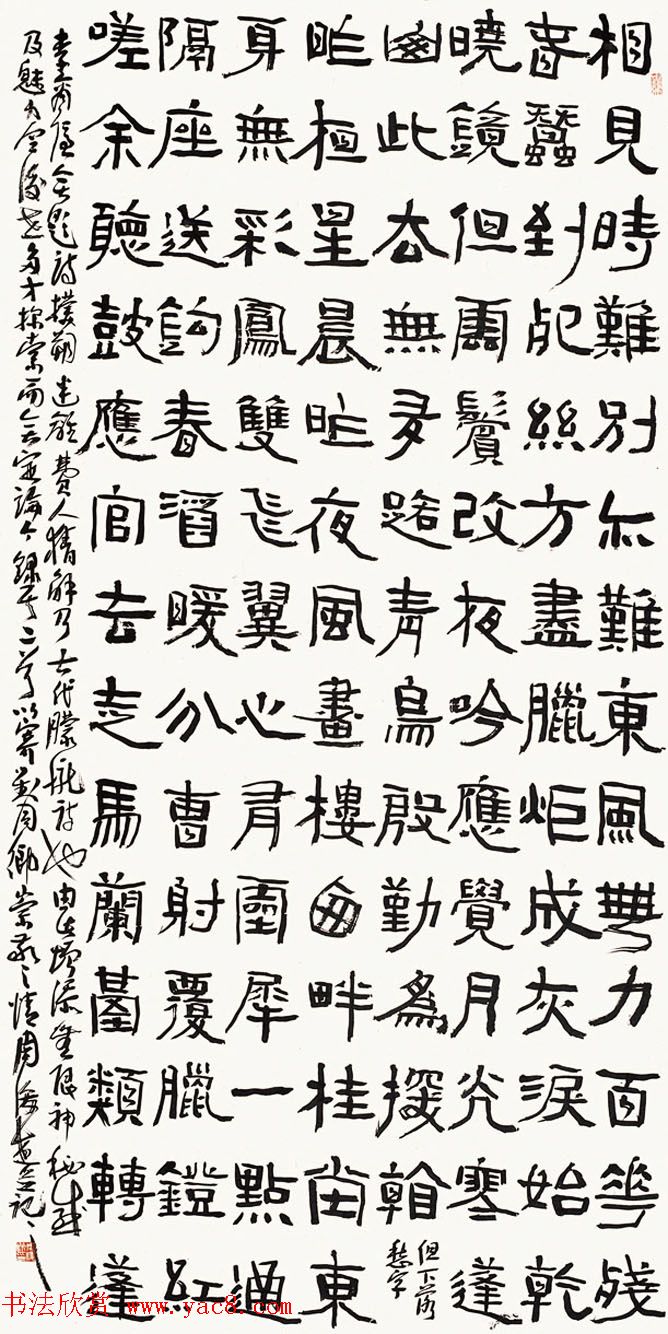 相見時難別亦難東風無力百花殘
春蠶到死絲方盡臘炬成灰淚始乾
曉鏡但雲鬢改夜吟應覺月光寒蓬
山此去無多路青鳥殷勤為探看
但下落愁字
昨夜星晨昨夜風畫樓西畔桂堂東
身無彩鳳雙飛翼心有靈犀一點通
隔座送鉤春酒暖分曹射覆臘鐙紅
嗟余聽鼓應官去走馬蘭臺類轉蓬
李商隱無題詩撲朔迷離費人猜解乃古代朦朧詩也由此增添無限神秘感
及魅力令後世多才探索而無定論今錄其二首以寄對同鄉崇敬之情周俊杰並記
书法欣赏 www.yac8.com